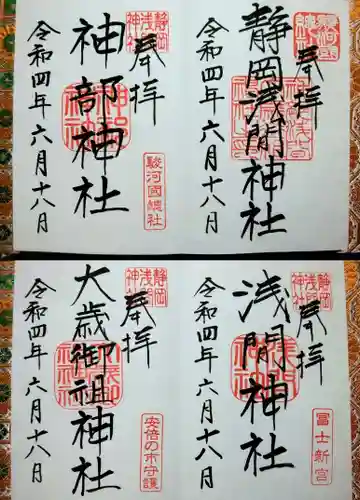 駿河國總社
奉拝
静岡浅間神社
令和四年六月十八日
静岡浅間神社
奉拝
駿河國總社
神部神社
令和四年六月十八日
静岡浅間神社
奉拝
冨士新宮
浅間神社
令和四年六月十八日
静岡浅間神社
奉拝
安倍の市守護
大歳御祖神社
令和四年六月十八日